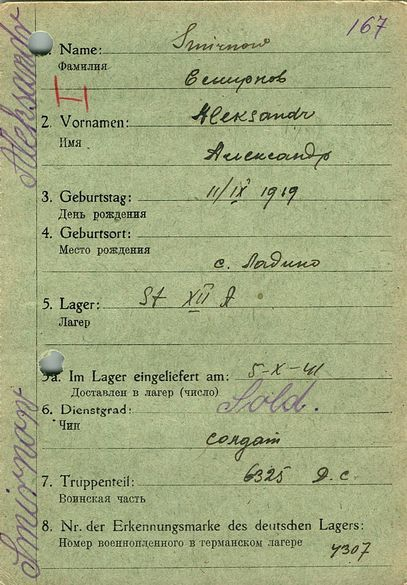 167
1. Name: Smirnow
Фамилия
Смирнов
2. Vornamen: Aleksandr
Имя
Александр
3. Geburtstag: 11/IX 1919
День рождения
4. Geburtsort:
Место рождения
с. Ладино
5. Lager: St XII A
Лагер
5a. Im Lager eingeliefert am: 5-X-41
Доставлен в лагер (число)
6. Dienstgrad: Sold.
Чин
солдат
7. Truppenteil: 6325 Д.с.
Воинская часть
8. Nr. der Erkennungsmarke des deutschen Lagers:
Номер военнопленного в германском лагере 4307
Smirnow Aleksandr